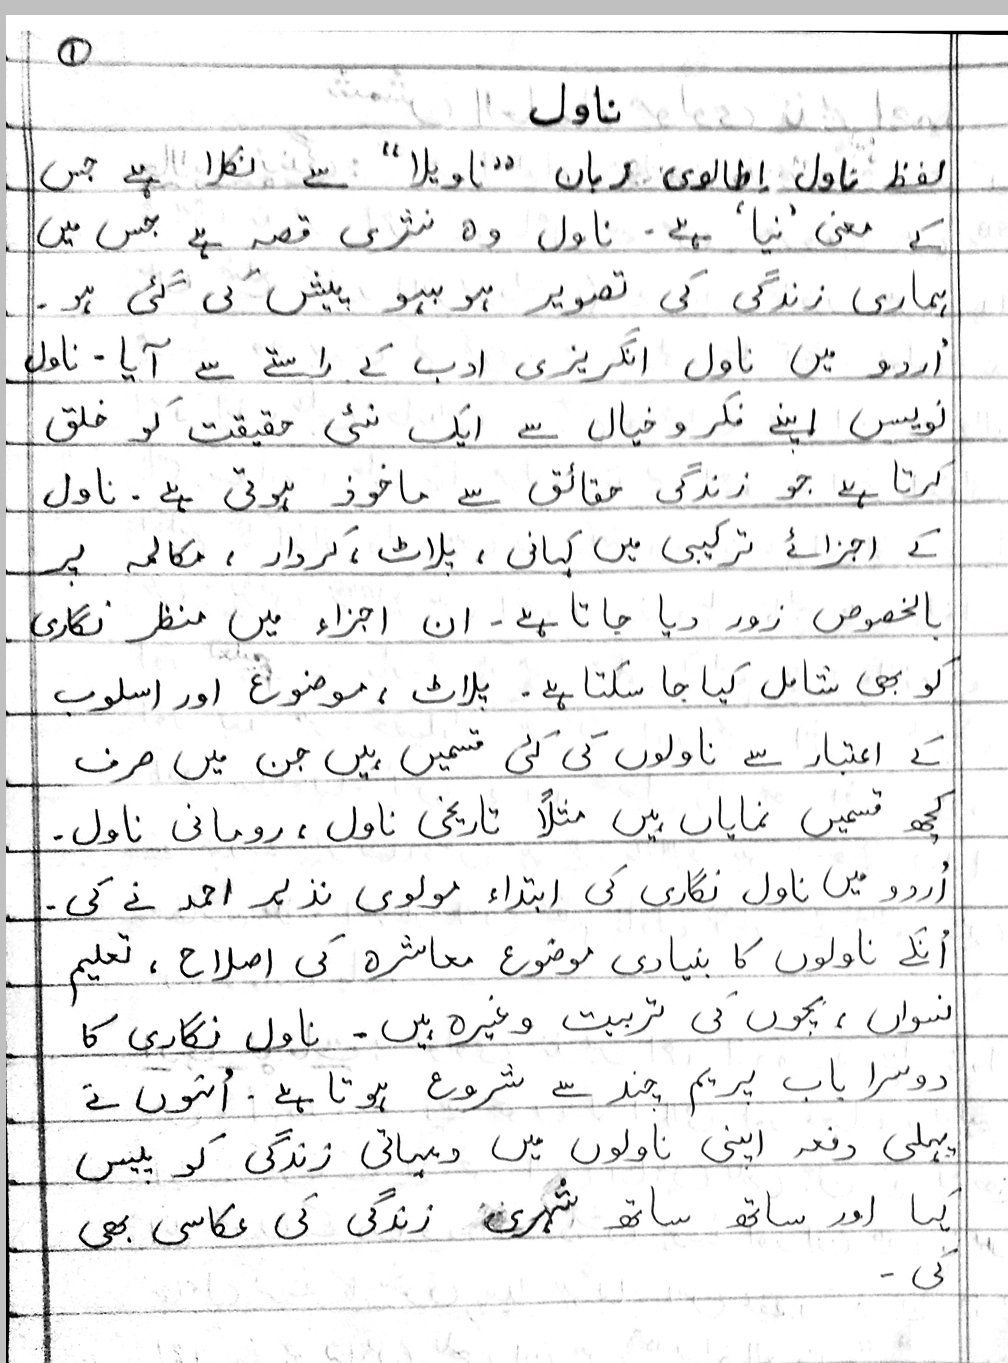 ①
ناول
لفظ ناول اطالوی زبان "ناویلا" سے نکلا ہے جس
کے معنی 'نیا' ہے۔ ناول وہ نثری قصہ ہے جس میں
ہماری زندگی کی تصویر ہو بہو پیش کی گئی ہو۔
اُردو میں ناول انگریزی ادب کے راستے سے آیا۔ ناول
نویس اپنے فکر و خیال سے ایک نئی حقیقت کو خلق
کرتا ہے جو زندگی حقائق سے ماخوذ ہوتی ہے۔ ناول
کے اجزائے ترکیبی میں کہانی ، پلاٹ ، کردار ، مکالمہ پر
بالخصوص زور دیا جاتا ہے۔ ان اجزاء میں منظر نگاری
کو بھی شامل کیا جا سکتا ہے۔ پلاٹ ، موضوع اور اسلوب
کے اعتبار سے ناولوں کی کئی قسمیں ہیں جن میں صرف
کچھ قسمیں نمایاں ہیں مثلاً تاریخی ناول ، رومانی ناول۔
اُردو میں ناول نگاری کی ابتداء مولوی نذیر احمد نے کی۔
اُنکے ناولوں کا بنیادی موضوع معاشرہ کی اصلاح ، تعلیم
نسواں ، بچوں کی تربیت وغیرہ ہیں۔ ناول نگاری کا
دوسرا باب پریم چند سے شروع ہوتا ہے۔ اُنہوں نے
پہلی دفعہ اپنی ناولوں میں دیہاتی زندگی کو پیس
کیا اور ساتھ ساتھ شہری زندگی کی عکاسی بھی
کی۔